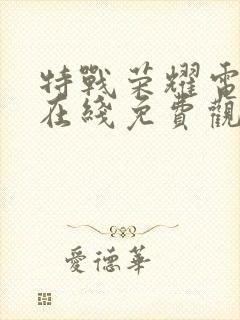 特戰榮耀電
在綫免費觀
愛德華